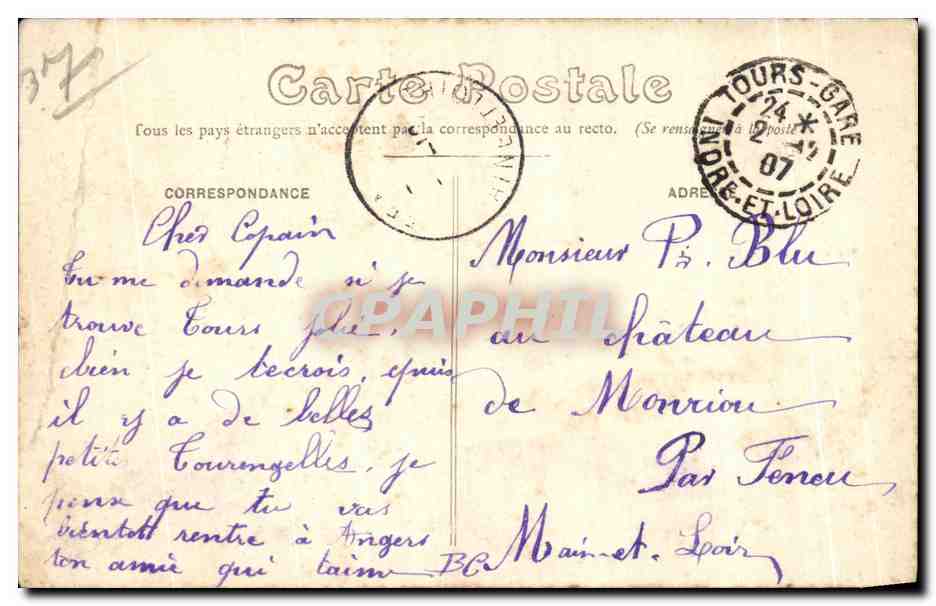 37
Carte Postale
Tous les pays étrangers n'acceptent pas la correspondance au recto. (Se renseigner à la poste)
TOURS-GARE
24 *
2 - 12
07
INDRE-ET-LOIRE
CORRESPONDANCE
ADRESSE
Cher Copain
Tu me demande si je
trouve Tours jolie,
bien je te crois, epuis
il y a de belles
petites Tourengelles, je
pense que tu vas
bientott rentre à Angers
ton amie qui t'aime BC
Monsieur Pi. Blu
au château
de Monriou
Par Feneu
Main-et-Loir
CPAPHIL